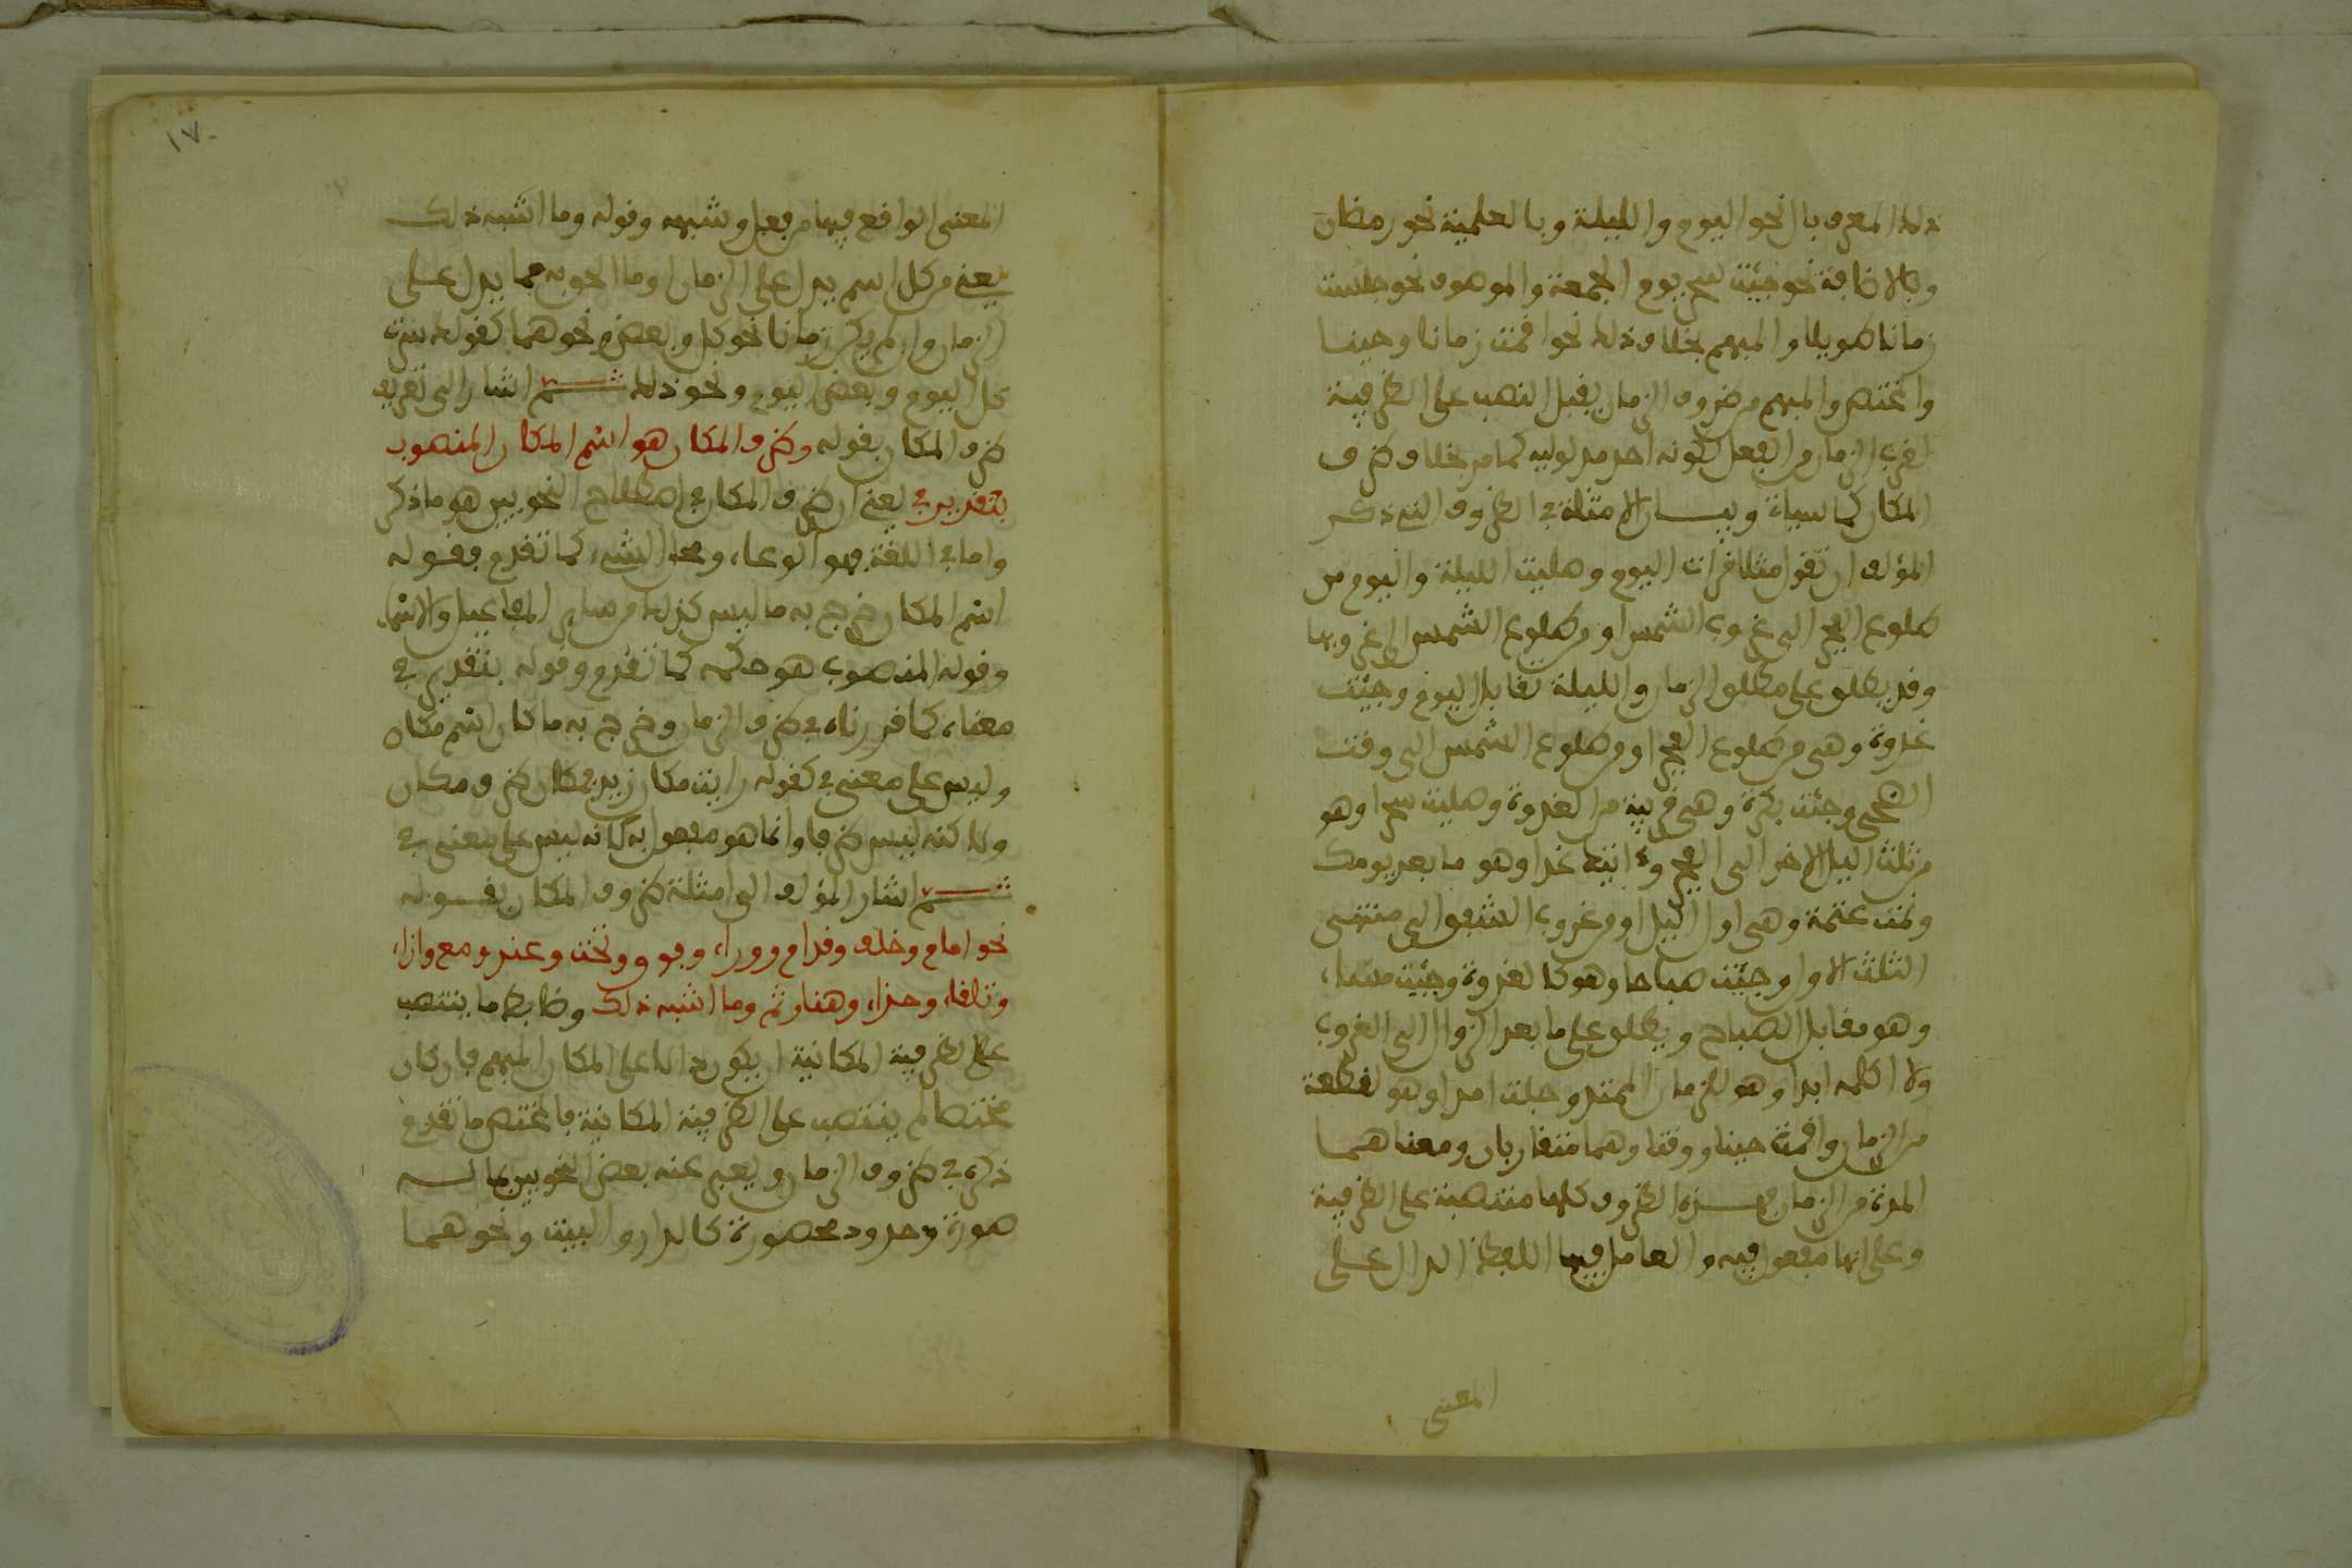 ذلك المعرف بال نحو اليوم والليلة وبالعلمية نحو رمضان
وبالاضافة نحو جئت يوم الجمعة والموصوف نحو جلست
زمانا طويلا والمبهم بخلاف ذلك نحو اقمت زمانا وحينا
والمختص والمبهم من ظروف الزمان يقبل النصب على الظرفية
لقرب الزمان من الفعل لكونه احد مدلوليه كما مر بخلاف ظرف
المكان كما سيأتي وبيان الامثلة في الظروف التي ذكر
المؤلف ان تقول مثلا قرأت اليوم وصليت الليلة واليوم من
طلوع الفجر الى غروب الشمس او من طلوع الشمس الى غروبها
وقد يطلق على مطلق الزمان والليلة تقابل اليوم وجئت
غدوة وهي من طلوع الفجر او من طلوع الشمس الى وقت
الضحى وجئت بكرة وهي قريبة من الغدوة وصليت سحرا وهو
من ثلث اليل الاخر الى الفجر و اتيك غدا وهو ما بعد يومك
ونمت عتمة وهي اول اليل او من غروب الشفق الى منتهى
الثلث الاول وجئت صباحا وهو كالغدوة وجئت مساء
وهو مقابل الصباح ويطلق على ما بعد الزوال الى الغروب
ولا اكلمه ابدا وهو للزمان الممتد و امدا وهو لقطعة
من الزمان واقمت حينا ووقتا وهما متقاربان ومعناهما
المدة من الزمان فهذه الظروف كلها منتصبة على الظرفية
وعلى انها مفعول فيه والعامل فيها اللفظ الدال على
المعنى
١٧
المعنى الواقع فيها من فعل وشبهه وقوله وما اشبه ذلك
يعني من كل اسم يدل على الزمان او ما الحق به مما يدل على
الزمان وان لم يكن زمانا نحو كل وبعض ونحوهما كقولك سرت
كل اليوم وبعض اليوم ونحو ذلك ثم اشار الى تعريف
ظرف المكان بقوله وظرف المكان هو اسم المكان المنصوب
بتقدير في يعني ان ظرف المكان في اصطلاح النحويين هو ما ذكر
واما في اللغة فهو الوعاء ومحل الشيء كما تقدم فقوله
اسم المكان خرج به ما ليس كذلك من سائر المفاعيل والاسماء
وقوله المنصوب هو حكمه كما تقدم وقوله بتقدير في
معناه كما قررناه في ظرف الزمان وخرج به ما كان اسم مكان
وليس على معنى في كقوله رايت مكان زيد فمكان ظرف مكان
ولاكنه ليس ظرفا وانما هو مفعول به لانه ليس على معنى في
ثم اشار المؤلف الى امثلة ظروف المكان بقوله
نحو امام وخلف وقدام ووراء وفوق وتحت وعند ومع وازاء
وتلقاء وحذاء وهنا وثم وما اشبه ذلك وضابط ما ينتصب
على الظرفية المكانية ان يكون دالا على المكان المبهم فان كان
مختصا لم ينتصب على الظرفية المكانية فالمختص ما تقدم
ذكره في ظروف الزمان ويعبر عنه بعض النحويين بما له
صورة وحدود محصورة كالدار والبيت ونحوهما